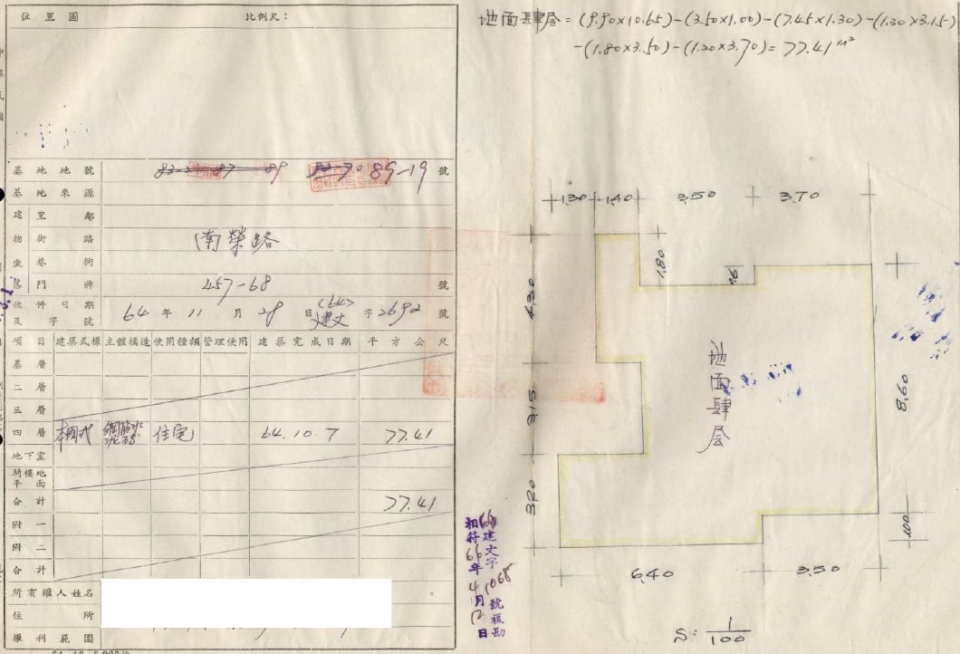 位置圖 比例尺：
基地地號 89-19 號
基地來源
建 里 鄰
物 街 路 南榮路
坐 巷 衖
落 門 牌 457-68 號
收件日期 64 年 11 月 28 日 (64)
及 字 號 建文 字 2692 號
項目 建築式樣 主體構造 使用種類 管理使用 建築完成日期 平方公尺
基層
二層
三層
四層 本國式 鋼筋 住宅 64.10.7 77.41
地下室
騎樓地
平面
合計 77.41
附一
附二
合計
所有權人姓名
住所
權利範圍
地面肆层=(9.90×10.65)-(3.50×1.00)-(7.45×1.30)-(1.30×3.15)
-(1.80×3.50)-(1.20×3.70)=77.41m²
1.30 1.40 3.50 3.70
1.80
4.30
3.15
3.20
地面肆层
8.60
1.00
6.40 3.50
S: 1/100
66建文字1068號複勘
相符66年4月12日